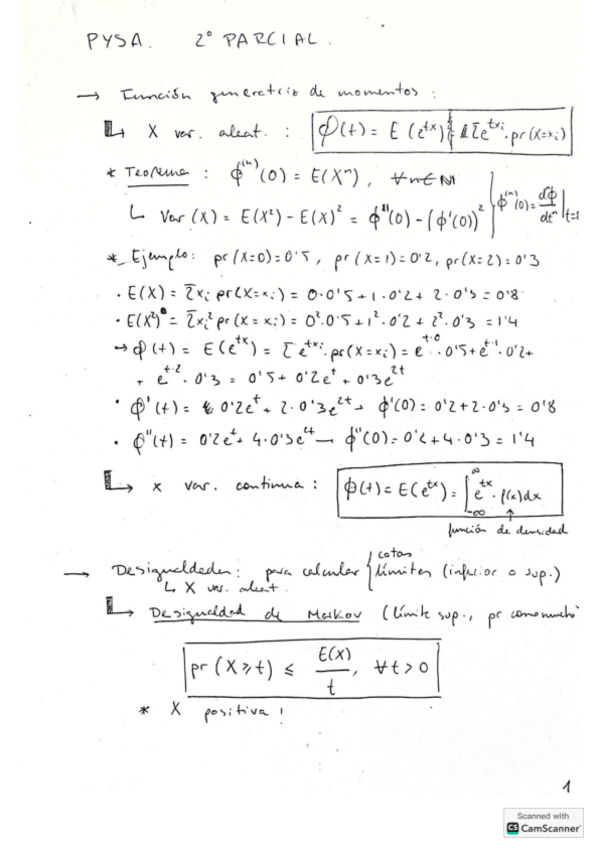 PYSA. 2º PARCIAL.
→ Función generatriz de momentos :
↳ X var. aleat. : ϕ(t) = E(e^tx) = Σe^txi · pr(X=xi)
* Teorema : ϕ^(n)(0) = E(X^n), ∀n∈ℕ } ϕ^(n)(0) = dϕ/dt^n |t=0
↳ Var(X) = E(X²) - E(X)² = ϕ''(0) - (ϕ'(0))²
* Ejemplo: pr(X=0)=0'5, pr(X=1)=0'2, pr(X=2)=0'3
· E(X) = Σxi pr(X=xi) = 0·0'5+1·0'2+2·0'3=0'8
· E(X²) = Σxi² pr(X=xi) = 0²·0'5+1²·0'2+2²·0'3=1'4
→ ϕ(t) = E(e^tx) = Σe^txi · pr(X=xi) = e^t·0 · 0'5+e^t·1 · 0'2+
+ e^t·2 · 0'3 = 0'5+0'2e^t+0'3e^2t
· ϕ'(t) = 0'2e^t + 2·0'3e^2t → ϕ'(0) = 0'2+2·0'3 = 0'8
· ϕ''(t) = 0'2e^t + 4·0'3e^2t → ϕ''(0) = 0'2+4·0'3 = 1'4
↳ x var. continua : ϕ(t) = E(e^tx) = ∫_-∞^∞ e^tx · f(x)dx
↑
función de densidad
→ Desigualdades: para calcular { cotas
límites (inferior o sup.)
↳ X var. aleat.
↳ Desigualdad de Markov (límite sup., pr como mucho
pr(X≥t) ≤ E(X)/t, ∀t>0
* X positiva !
1
Scanned with
CS CamScanner